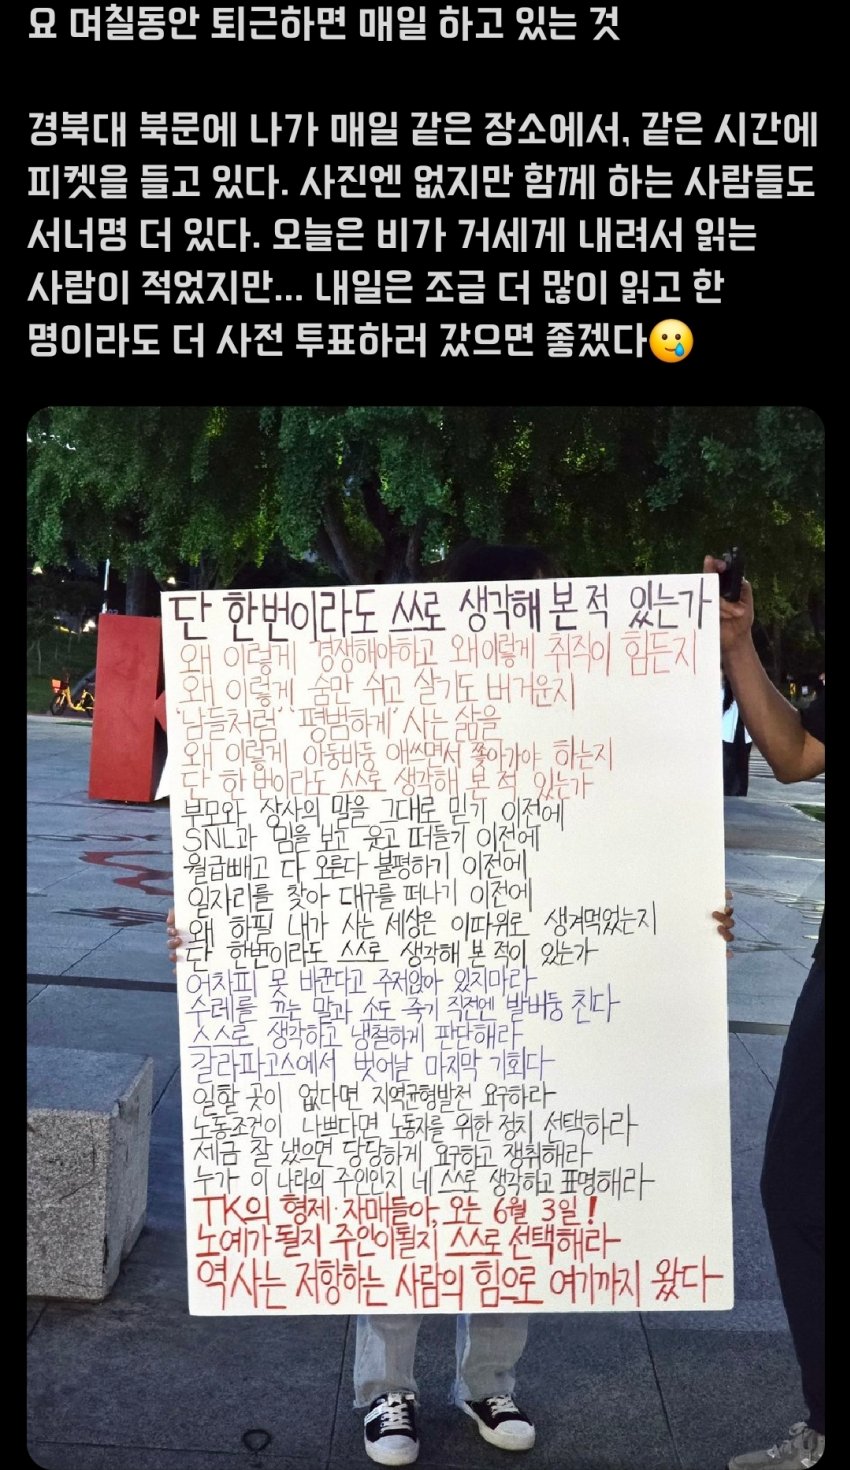 요 며칠동안 퇴근하면 매일 하고 있는 것
경북대 북문에 나가 매일 같은 장소에서, 같은 시간에
피켓을 들고 있다. 사진엔 없지만 함께 하는 사람들도
서너명 더 있다. 오늘은 비가 거세게 내려서 읽는
사람이 적었지만... 내일은 조금 더 많이 읽고 한
명이라도 더 사전 투표하러 갔으면 좋겠다🥲
단 한번이라도 쓰로 생각해 본 적 있는가
왜 이렇게 경쟁해야하고 왜이렇게 취직이 힘든지
왜 이렇게 숨만 쉬고 살기도 버거운지
'남들처럼' '평범하게' 사는 삶을
왜 이렇게 아둥바둥 애쓰면서 쫓아가야 하는지
단 한번이라도 스스로 생각해 본 적 있는가
부모와 상사의 말을 그대로 믿기 이전에
SNL과 밈을 보고 웃고 떠들기 이전에
월급빼고 다 오른다 불평하기 이전에
일자리를 찾아 대구를 떠나기 이전에
왜 하필 내가 사는 세상은 이따위로 생겨먹었는지
단 한번이라도 스스로 생각해 본 적이 있는가
어차피 못 바꾼다고 주저앉아 있지마라
수레를 끄는 말과 소도 죽기 직전엔 발버둥 친다
스스로 생각하고 냉철하게 판단해라
갈라파고스에서 벗어날 마지막 기회다
일할 곳이 없다면 지역균형발전 요구하라
노동조건이 나쁘다면 노동자를 위한 정치 선택하라
세금 잘 냈으면 당당하게 요구하고 쟁취해라
누가 이 나라의 주인인지 네 스스로 생각하고 표명해라
TK의 형제·자매들아, 오는 6월 3일!
노예가 될지 주인이될지 스스로 선택해라
역사는 저항하는 사람의 힘으로 여기까지 왔다